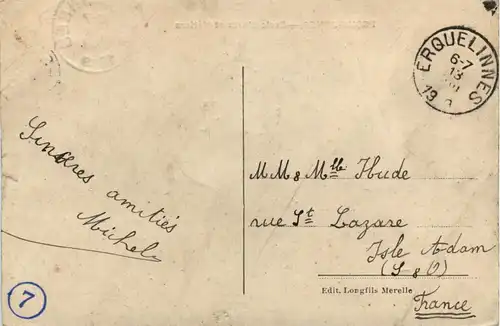 ERQUELINNES
6-7
13
19
Sincères amitiés
Michel
MM & Mlle Hude
rue St Lazare
Isle Adam
(S & O)
Edit. Longfils Merelle
France
7